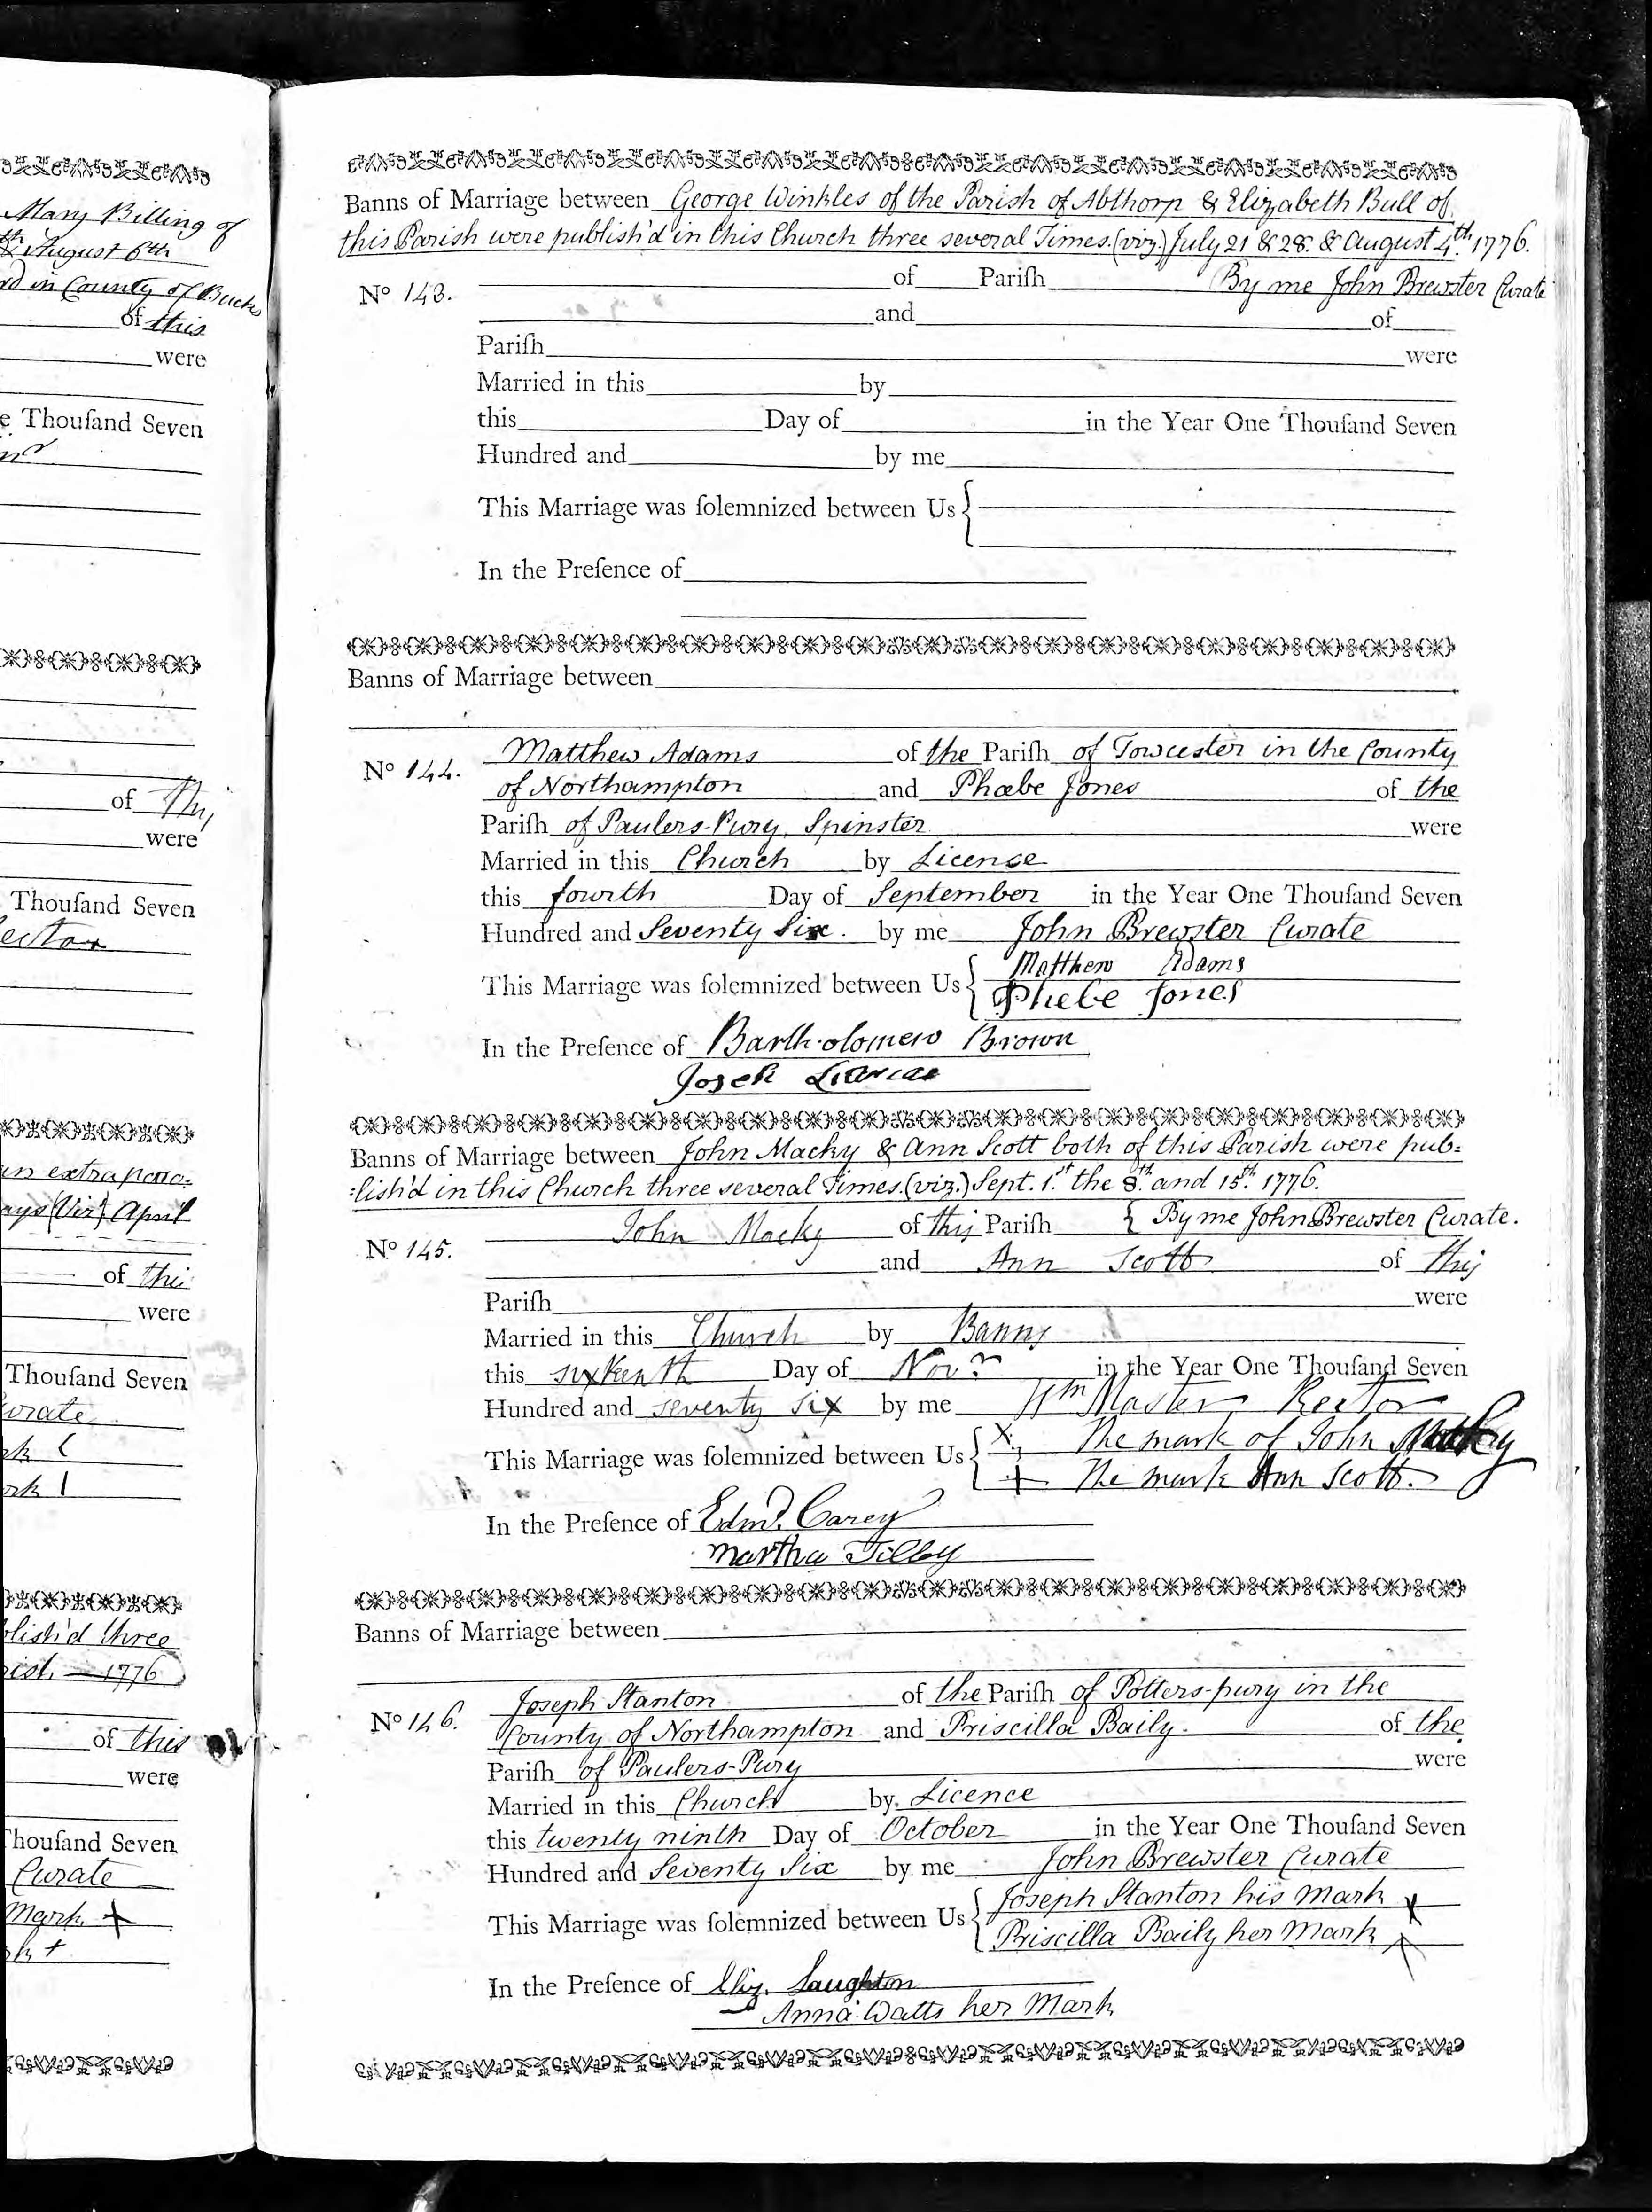 Mary Billing of
th & August 6th
rd in County of Bucks
of this
were
e Thousand Seven
of this
were
Thousand Seven
ector
an extraparo=
ays (Viz) April
of this
were
Thousand Seven
urate
rk
ark
blish'd three
1776
of this
were
Thousand Seven
Curate
Mark +
rk +
Banns of Marriage between George Winkles of the Parish of Abthorp & Elizabeth Bull of
this Parish were publish'd in this Church three several Times. (viz.) July 21 & 28. & August 4th. 1776.
of Pariſh By me John Brewster Curate
No 143.
and of
Pariſh were
Married in this by
this Day of in the Year One Thouſand Seven
Hundred and by me
This Marriage was ſolemnized between Us
In the Preſence of
Banns of Marriage between
Matthew Adams of the Pariſh of Towcester in the County
No 144.
of Northampton and Phœbe Jones of the
Pariſh of Paulers-Pury, Spinster were
Married in this Church by License
this fourth Day of September in the Year One Thouſand Seven
Hundred and Seventy Six. by me John Brewster Curate
Matthew Adams
This Marriage was ſolemnized between Us
Phebe Jones
In the Preſence of Bartholomew Brown
Banns of Marriage between John Macky & Ann Scott both of this Parish were pub=
=lish'd in this Church three several Times. (viz.) Sept. 1.st the 8.th and 15.th 1776.
John Macky of this Pariſh { By me John Brewster Curate.
No 145.
and Ann Scott of this
Pariſh were
Married in this Church by Banns
this sixteenth Day of Novr in the Year One Thouſand Seven
Hundred and seventy six by me Wm Master Rector
X The mark of John Macky
This Marriage was ſolemnized between Us
+ The mark Ann Scott.
In the Preſence of Edmd. Carey
Martha Tilley
Banns of Marriage between
Joseph Stanton of the Pariſh of Potters-pury in the
No 146.
County of Northampton and Priscilla Baily. of the
Pariſh of Paulers-Pury were
Married in this Church by Licence
this twenty ninth Day of October in the Year One Thouſand Seven
Hundred and Seventy Six by me John Brewster Curate
Joseph Stanton his Mark X
This Marriage was ſolemnized between Us
Priscilla Baily her Mark X
In the Preſence of Eliz. Laughton
Anna Watts her Mark